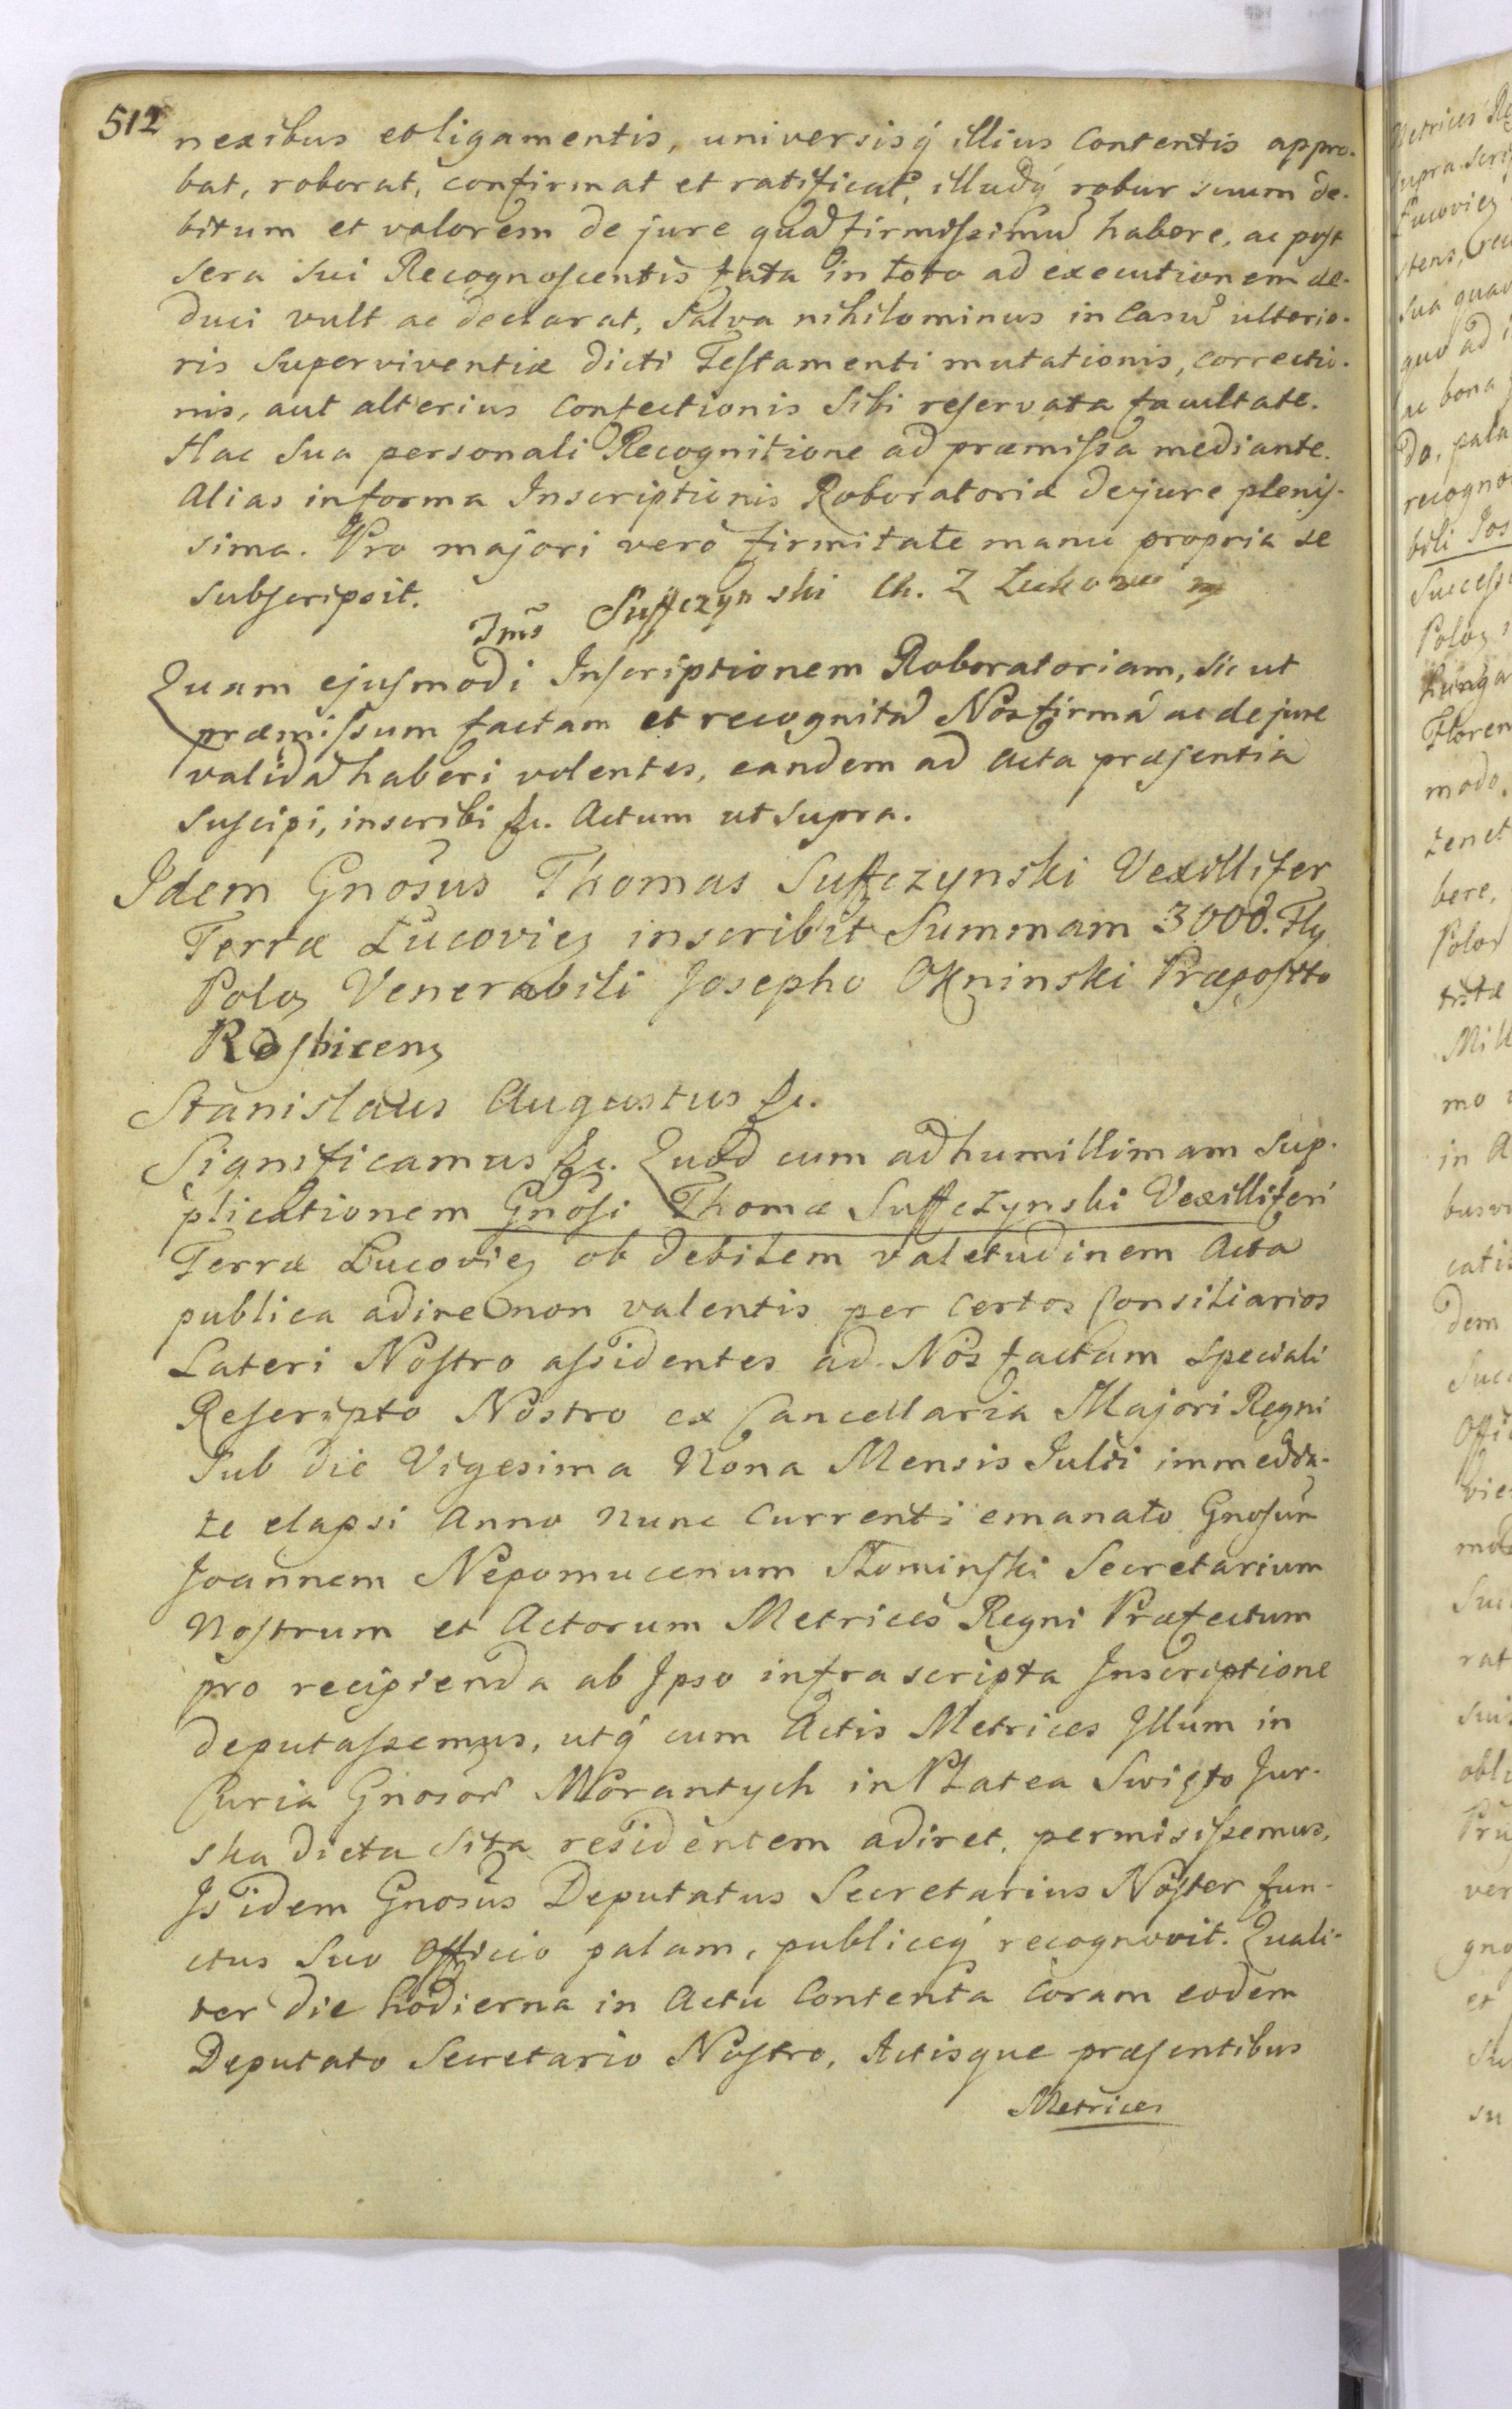 512
nexibus et ligamentis, universisq́ illius Contentis appro-
bat, roborat, confirmat et ratificat, illudq́ robur suum de-
bitum et valorem de jure quã firmiſsimũ habere, ac poſt
sera sui Recognoſcentis fata in toto ad executionem de-
duci vult ac declarat, Salva nihilominus in Casũ ulterio-
ris Superviventiæ dicti Teſtamenti mutationis, correctio-
nis, aut alterius Confectionis Sibi reſervata facultate.
Hac Sua personali Recognitione ad præmiſsa mediante.
Alias in forma Inscriptionis Roboratoriæ de jure pleniſ-
sima. Pro majori vero firmitate manu propria se
Subſcripsit.
Tms̃ Suffczynski Ch. Z Łukows mp
Quam ejuſmodi Inſcriptionem Roboratoriam, sic ut
præmiſsum factam et recognitã Nos firmã ac de jure
validã haberi volentes, eandem ad Acta præſentia
Suſcipi, inscribi &c. Actum ut Supra.
Idem Gnõsus Thomas Suffczynski Vexillifer
Terræ Lucovieȝ inscribit Summam 3000. Fłȝ
Poloȝ Venerabili Josepho Okninski Præpoſito
Stanislaus Auguſtus &c.
Significamus &c. Quod cum ad humillimam Sup-
plicationem Gnõſi Thomæ Suffczynski Vexilliferi
Terræ Lucovieȝ ob debilem valetudinem Acta
publica adire non valentis per Certos Consiliarios
Lateri Noſtro aſsidentes ad Nos factam Speciali
Reſcripto Nostro ex Cancellaria Majori Regni
Sub die Vigesima Nona Mensis Julii immedia-
te elapsi Anno nunc Currenti emanato Gnoſum̃
Joannem Nepomucenum Słominſki Secretarium
Noſtrum et Actorum Metrices Regni Præfectum
pro recipienda ab Ipso infrascripta Inscriptione
deputaſsemus, utq́ cum Actis Metrices Illum in
Curia Gnosor̃ Morantych in Platea Swięto Jur-
ska dicta Sita residentem adiret, permisiſsemus,
Is idem Gnosũs Deputatus Secretarius Noſter fun-
ctus Suo Officio palam, publiceq́ recognovit. Quali-
ter die hodierna in Actu Contenta Coram eodem
Deputato Secretario Noſtro, Actisque præſentibus
Metrices